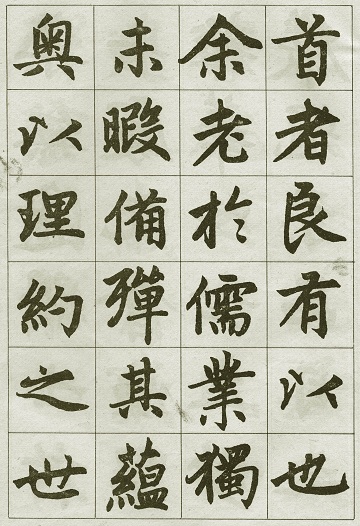 首者良有以也
余老於儒業獨
未暇備殫其蘊
奥以理約之世